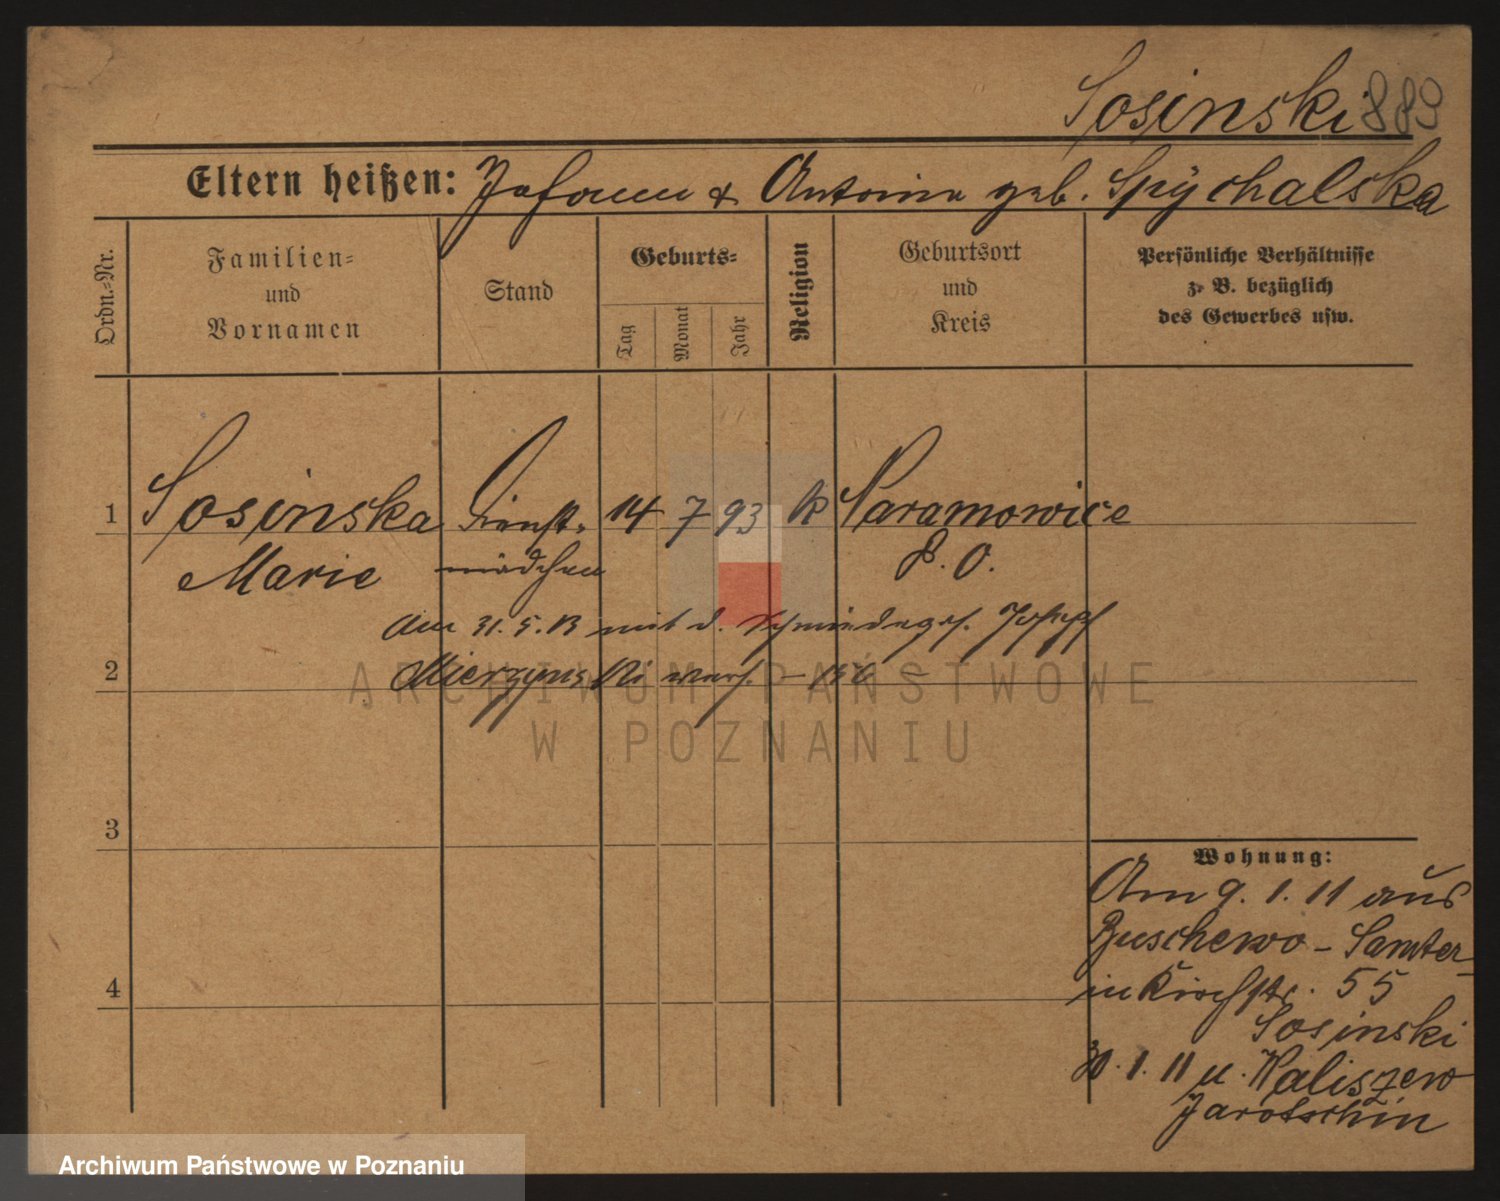 Sosinski 889
Eltern heißen: Johann & Antonina geb. Spychalska
Ordn.=Nr.
Familien=
und
Vornamen
Stand
Geburts=
Tag
Monat
Jahr
Religion
Geburtsort
und
Kreis
Persönliche Verhältnisse
z. B. bezüglich
des Gewerbes usw.
1 Sosinska Dienst- 14 7 93 k Naramowice
Marie mädchen P. O.
Am 31. 5. 13 mit d. Schmiedeges. Joseph
2 Mierzynski verh.
3
4
Wohnung:
Am 9. 1. 11 aus
Buschewo - Samter
in Kirchstr. 55
Sosinski
30. 1. 11 n. Kaliszewo
Jarotschin
ARCHIWUM PAŃSTWOWE
W POZNANIU
Archiwum Państwowe w Poznaniu